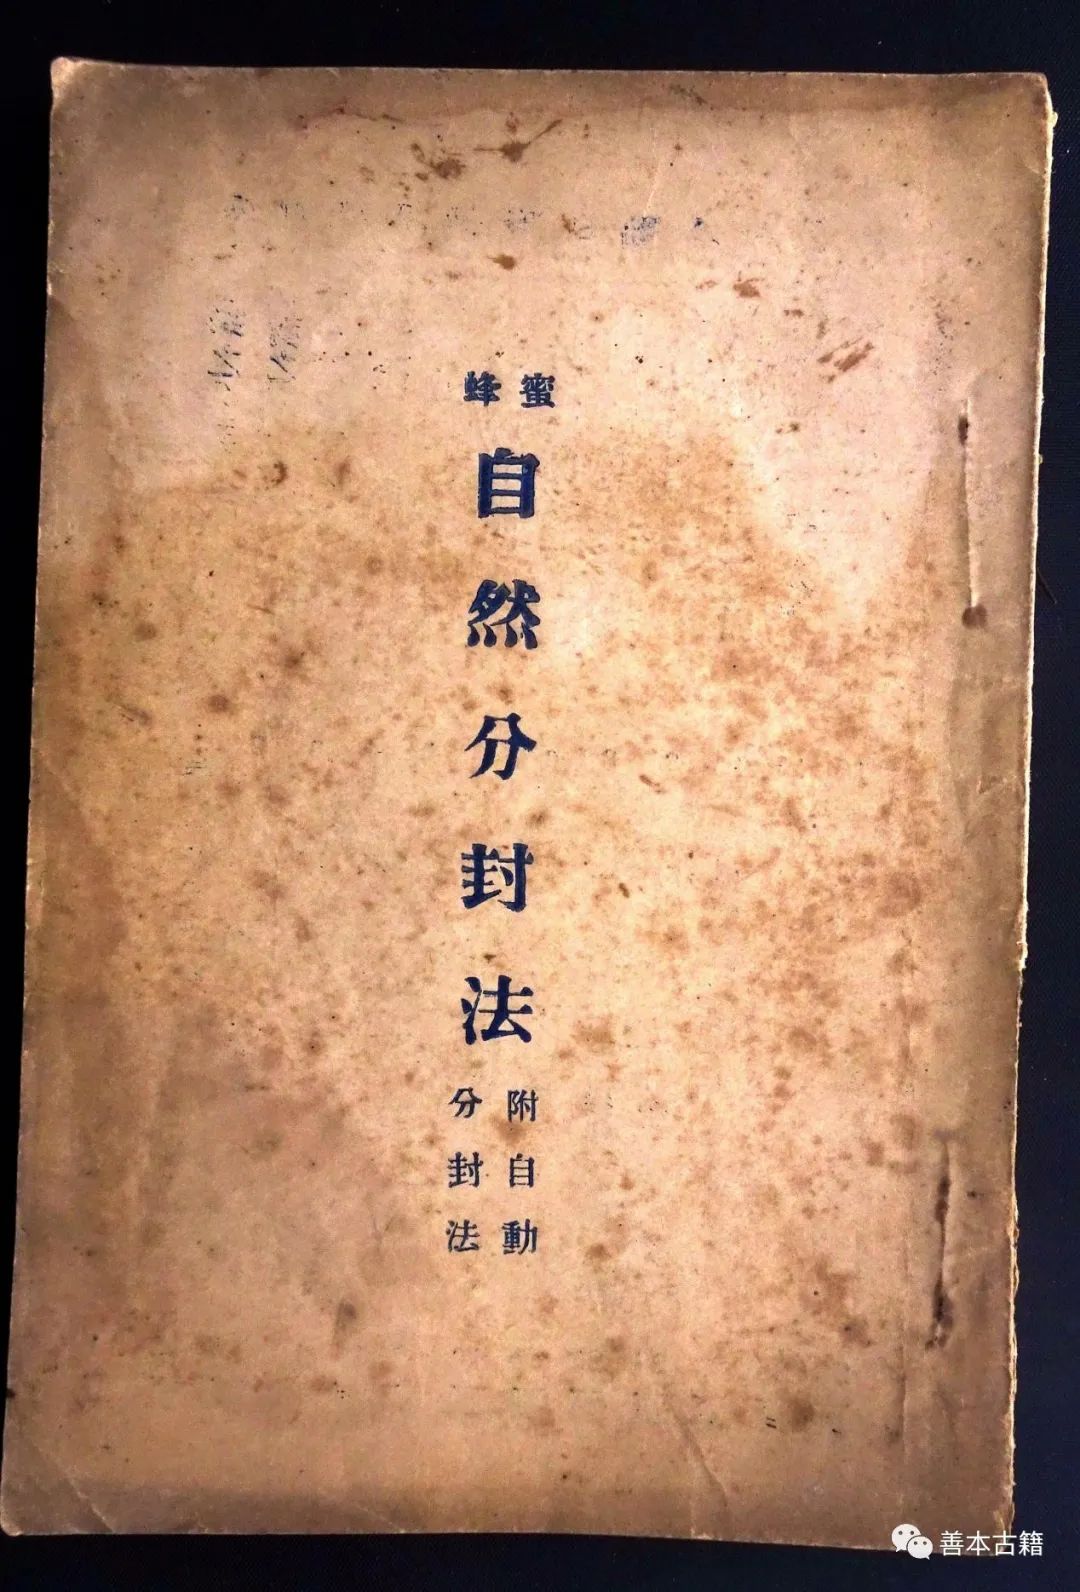 蜜蜂
自然分封法
附自動
分封法
善本古籍